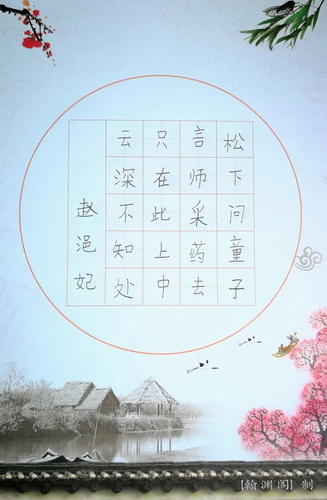 松下问童子
言师采药去
只在此上中
云深不知处
赵浥妃
【翰渊阁】制